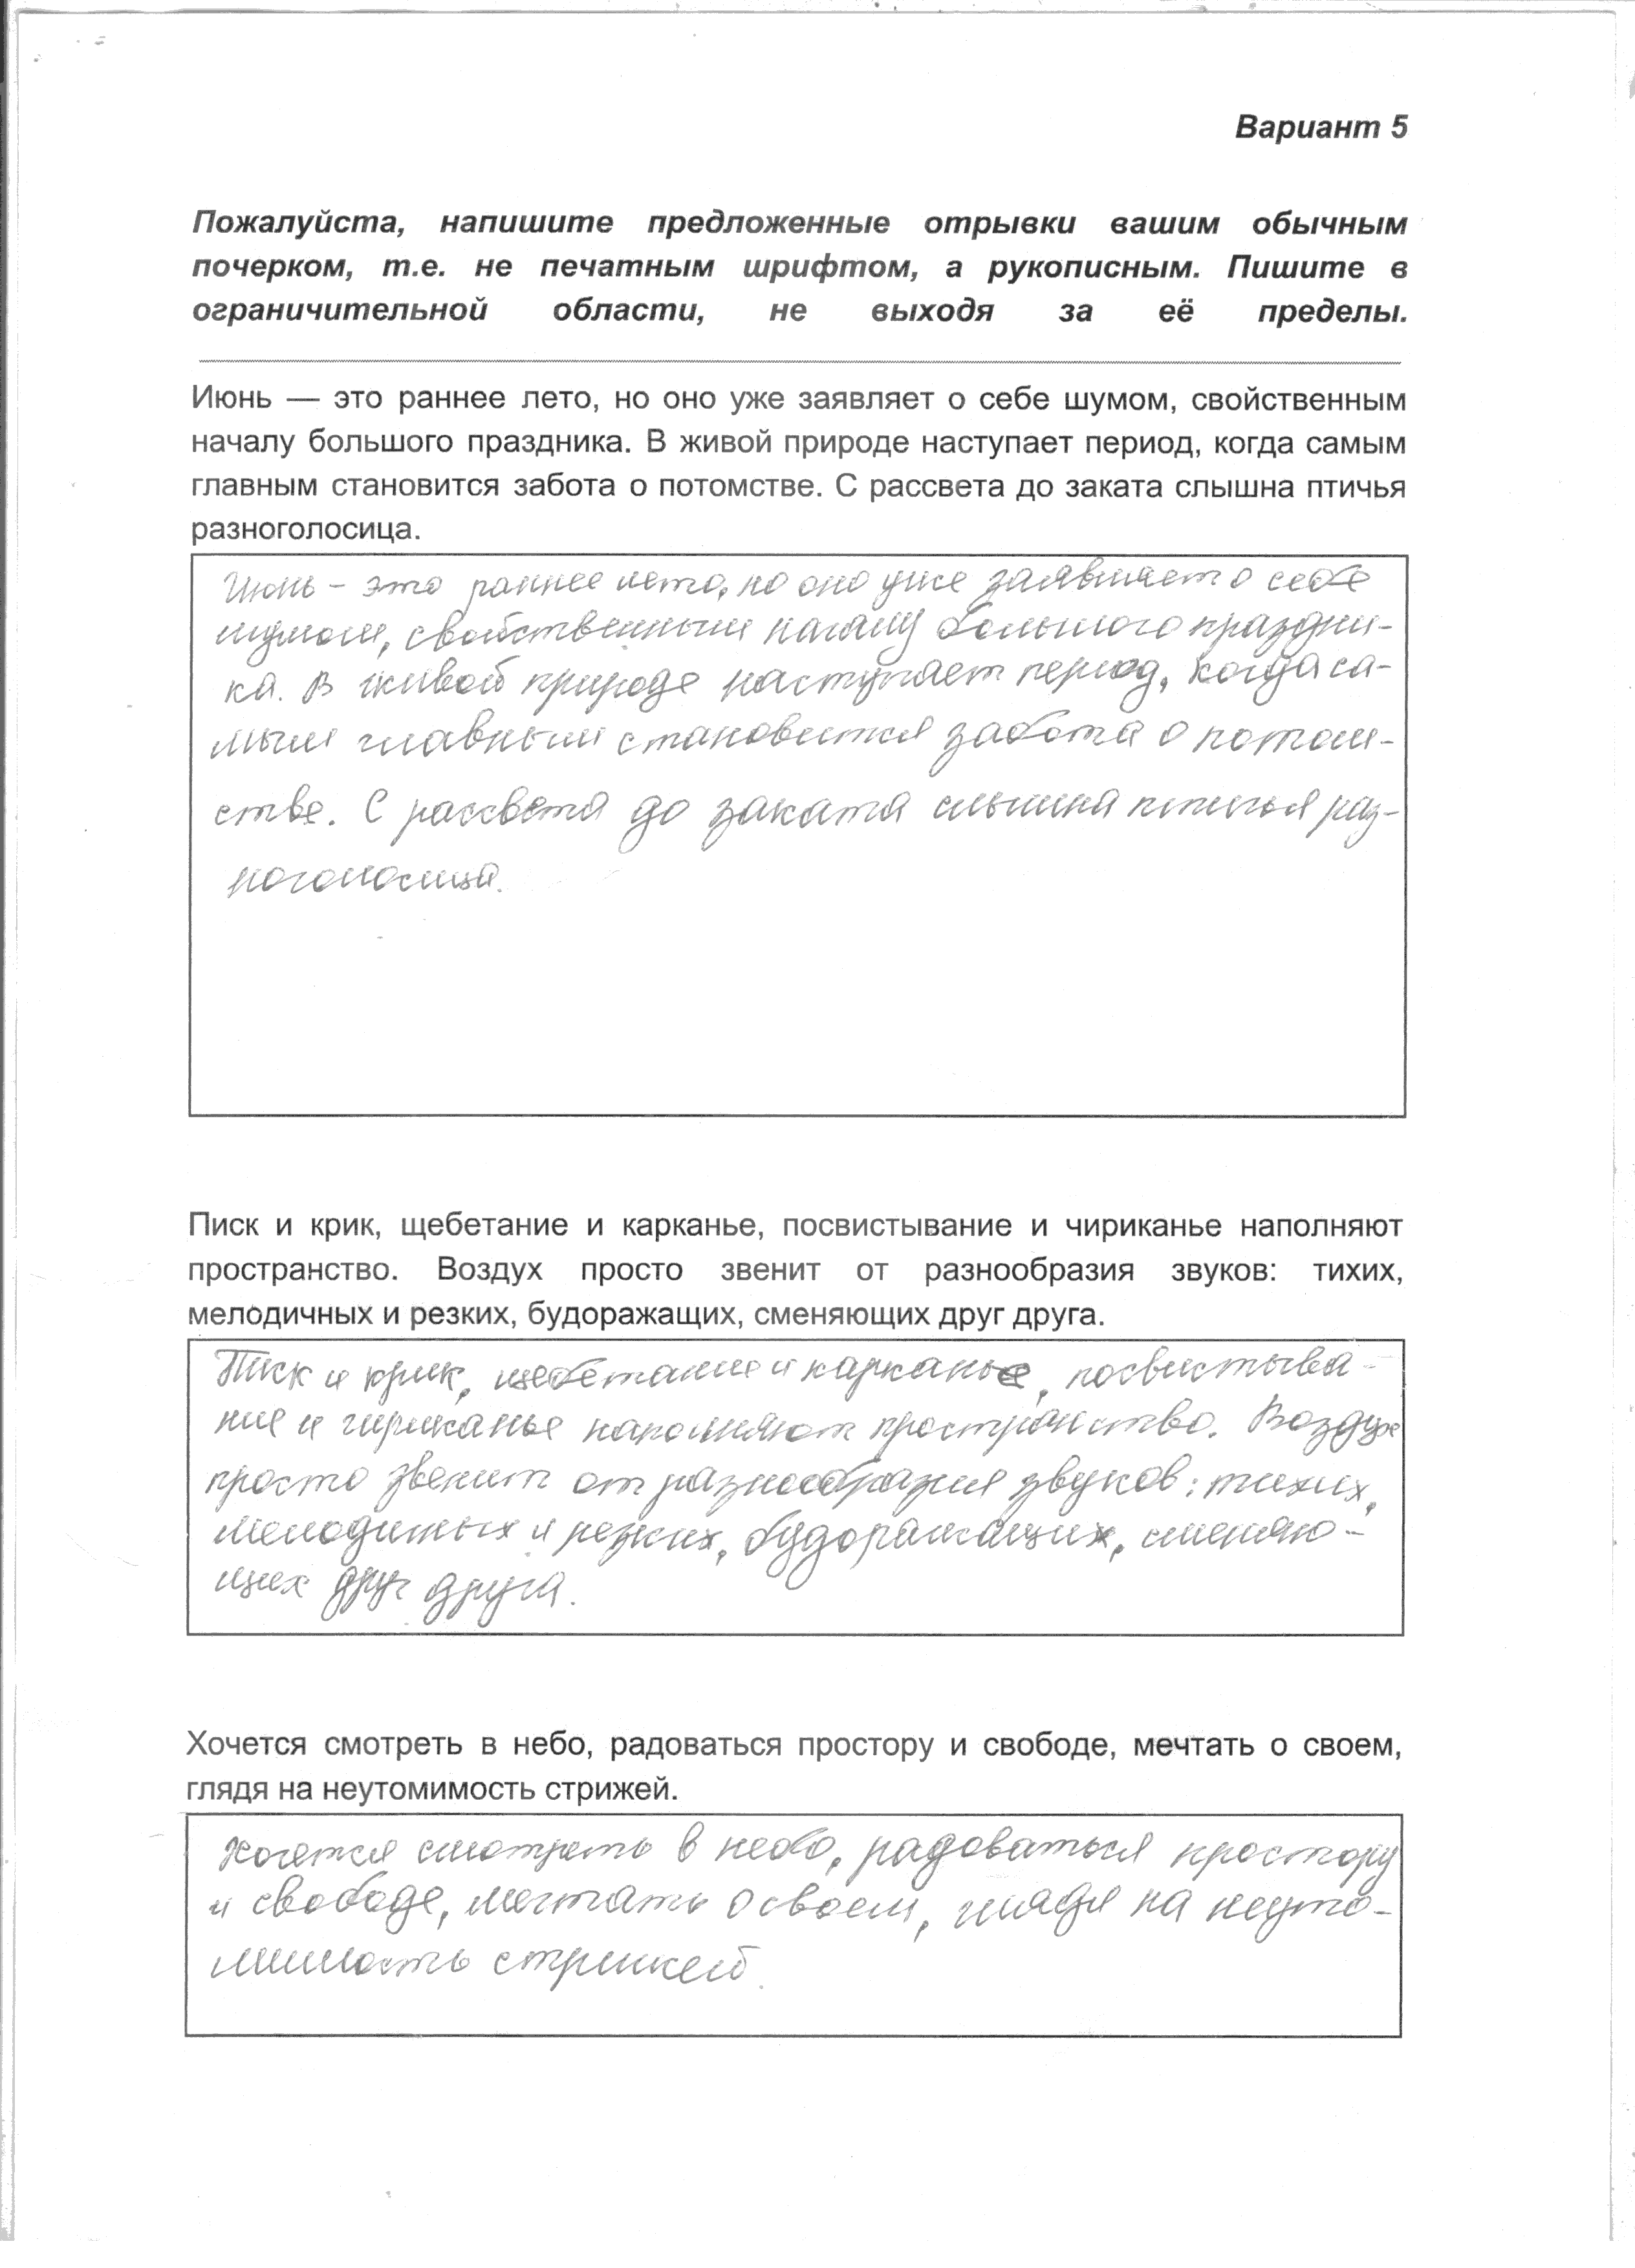 Вариант 5
Пожалуйста, напишите предложенные отрывки вашим обычным
почерком, т.е. не печатным шрифтом, а рукописным. Пишите в
ограничительной области, не выходя за её пределы.
Июнь — это раннее лето, но оно уже заявляет о себе шумом, свойственным
началу большого праздника. В живой природе наступает период, когда самым
главным становится забота о потомстве. С рассвета до заката слышна птичья
разноголосица.
Июнь - это раннее лето, но оно уже заявляет о себе
шумом, свойственным началу большого праздни-
ка. В живой природе наступает период, когда са-
мым главным становится забота о потом-
стве. С рассвета до заката слышна птичья раз-
ноголосица.
Писк и крик, щебетание и карканье, посвистывание и чириканье наполняют
пространство. Воздух просто звенит от разнообразия звуков: тихих,
мелодичных и резких, будоражащих, сменяющих друг друга.
Писк и крик, щебетание и карканье, посвистыва-
ние и чириканье наполняют пространство. Воздух
просто звенит от разнообразия звуков: тихих,
мелодичных и резких, будоражащих, сменяю-
щих друг друга.
Хочется смотреть в небо, радоваться простору и свободе, мечтать о своем,
глядя на неутомимость стрижей.
Хочется смотреть в небо, радоваться простору
и свободе, мечтать о своем, глядя на неуто-
мимость стрижей.